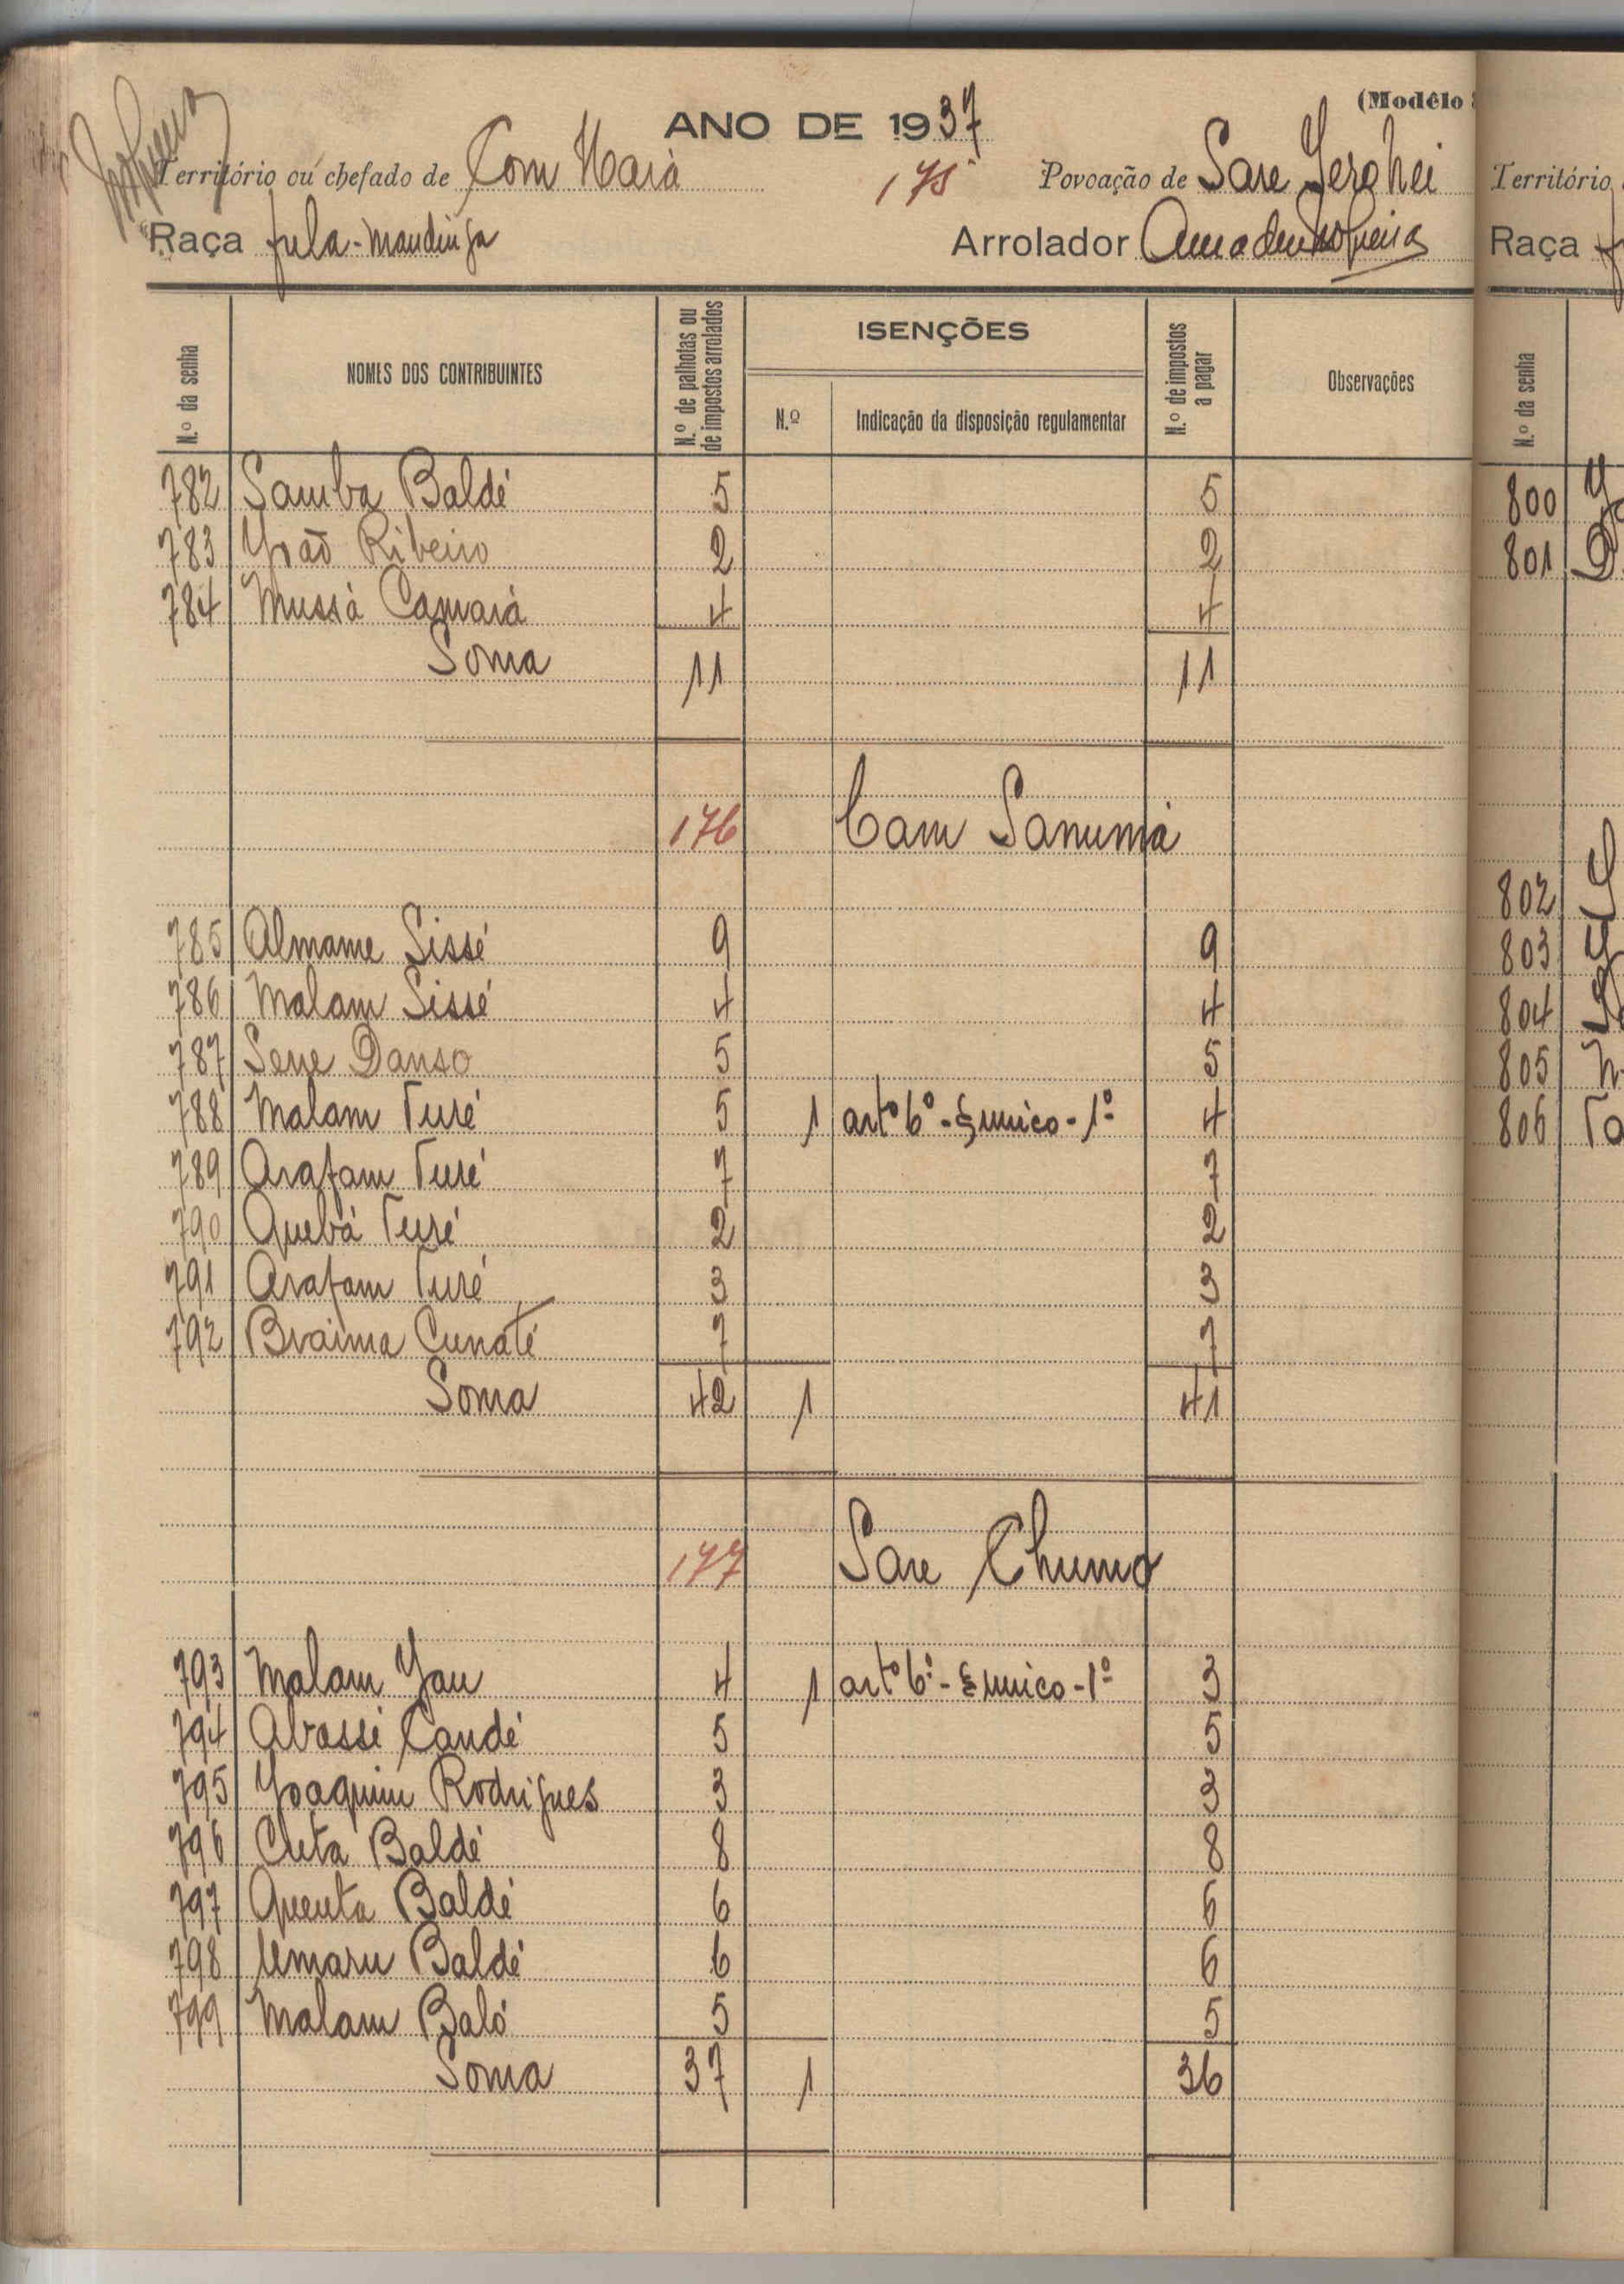 (Modêlo
ANO DE 1937
Território ou chefado de Com Hará 175 Povoação de Sare Gero hei
Raça fula-mandinga Arrolador Amadeu Nogueira
N.º da senha NOMES DOS CONTRIBUINTES N.º de palhotas ou de impostos arrolados ISENÇÕES N.º Indicação da disposição regulamentar N.º de impostos a pagar Observações
782 Samba Baldé 5 5
783 João Ribeiro 2 2
784 Mussá Camará 4 4
Soma 11 11
176 Cam Sanumá
785 Almame Sissé 9 9
786 Malam Sissé 4 4
787 Sene Danso 5 5
788 Malam Turé 5 1 artº 6º - § unico - 1º 4
789 Arafam Turé 7 7
790 Quebá Turé 2 2
791 Arafam Turé 3 3
792 Braima Cunaté 7 7
Soma 42 1 41
177 Sare Chumo
793 Malam Jau 4 1 artº 6º - § unico - 1º 3
794 Abassi Candé 5 5
795 Joaquim Rodrigues 3 3
796 Cutá Baldé 8 8
797 Quenta Baldé 6 6
798 Umaru Baldé 6 6
799 Malam Baló 5 5
Soma 37 1 36
Território
Raça
N.º da senha
800
801
802
803
804
805
806